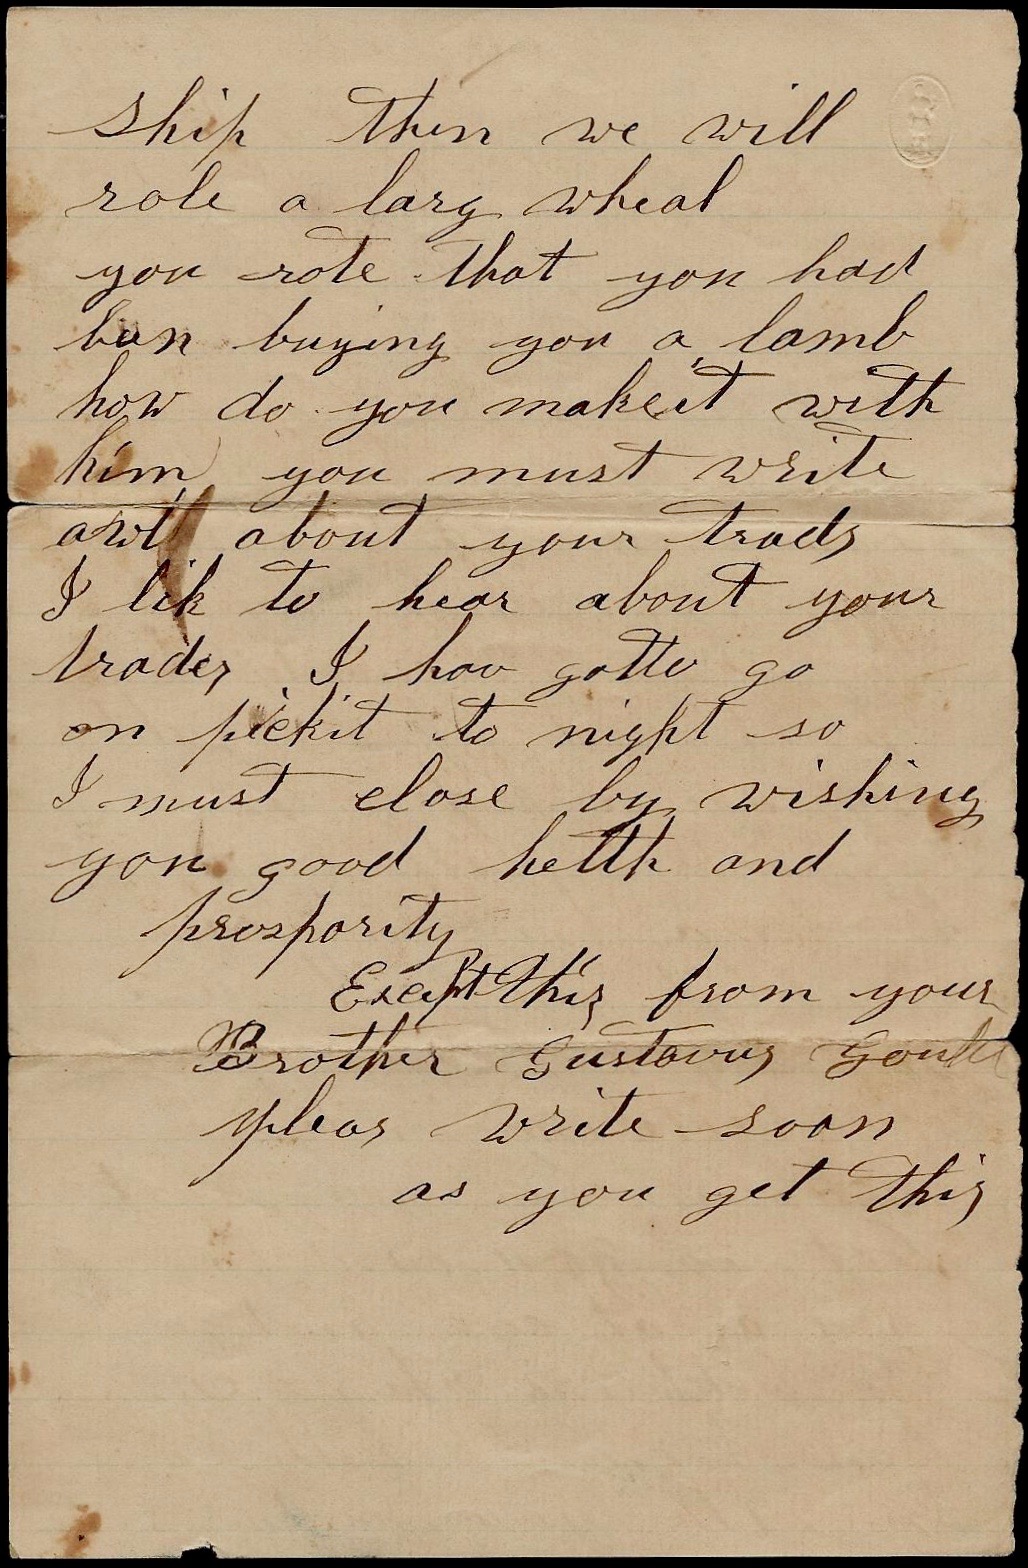 ship then we will
role a larg wheal
you rote that you had
ben buying you a lamb
how do you make it with
him you must write
awl about your trads
I lik to hear about your
trades I hav gotto go
on pickit to night so
I must close by wishing
you good helth and
prospority
Except this from your
Brother Gustavus
pleas write soon
as you get this